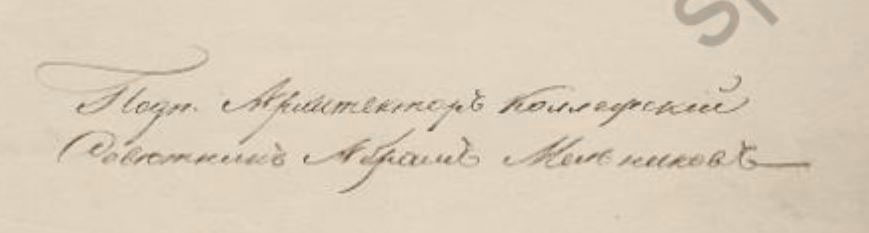 Подп. Архитекторъ Коллежскій
Совѣтникъ Абрамъ Мельниковъ